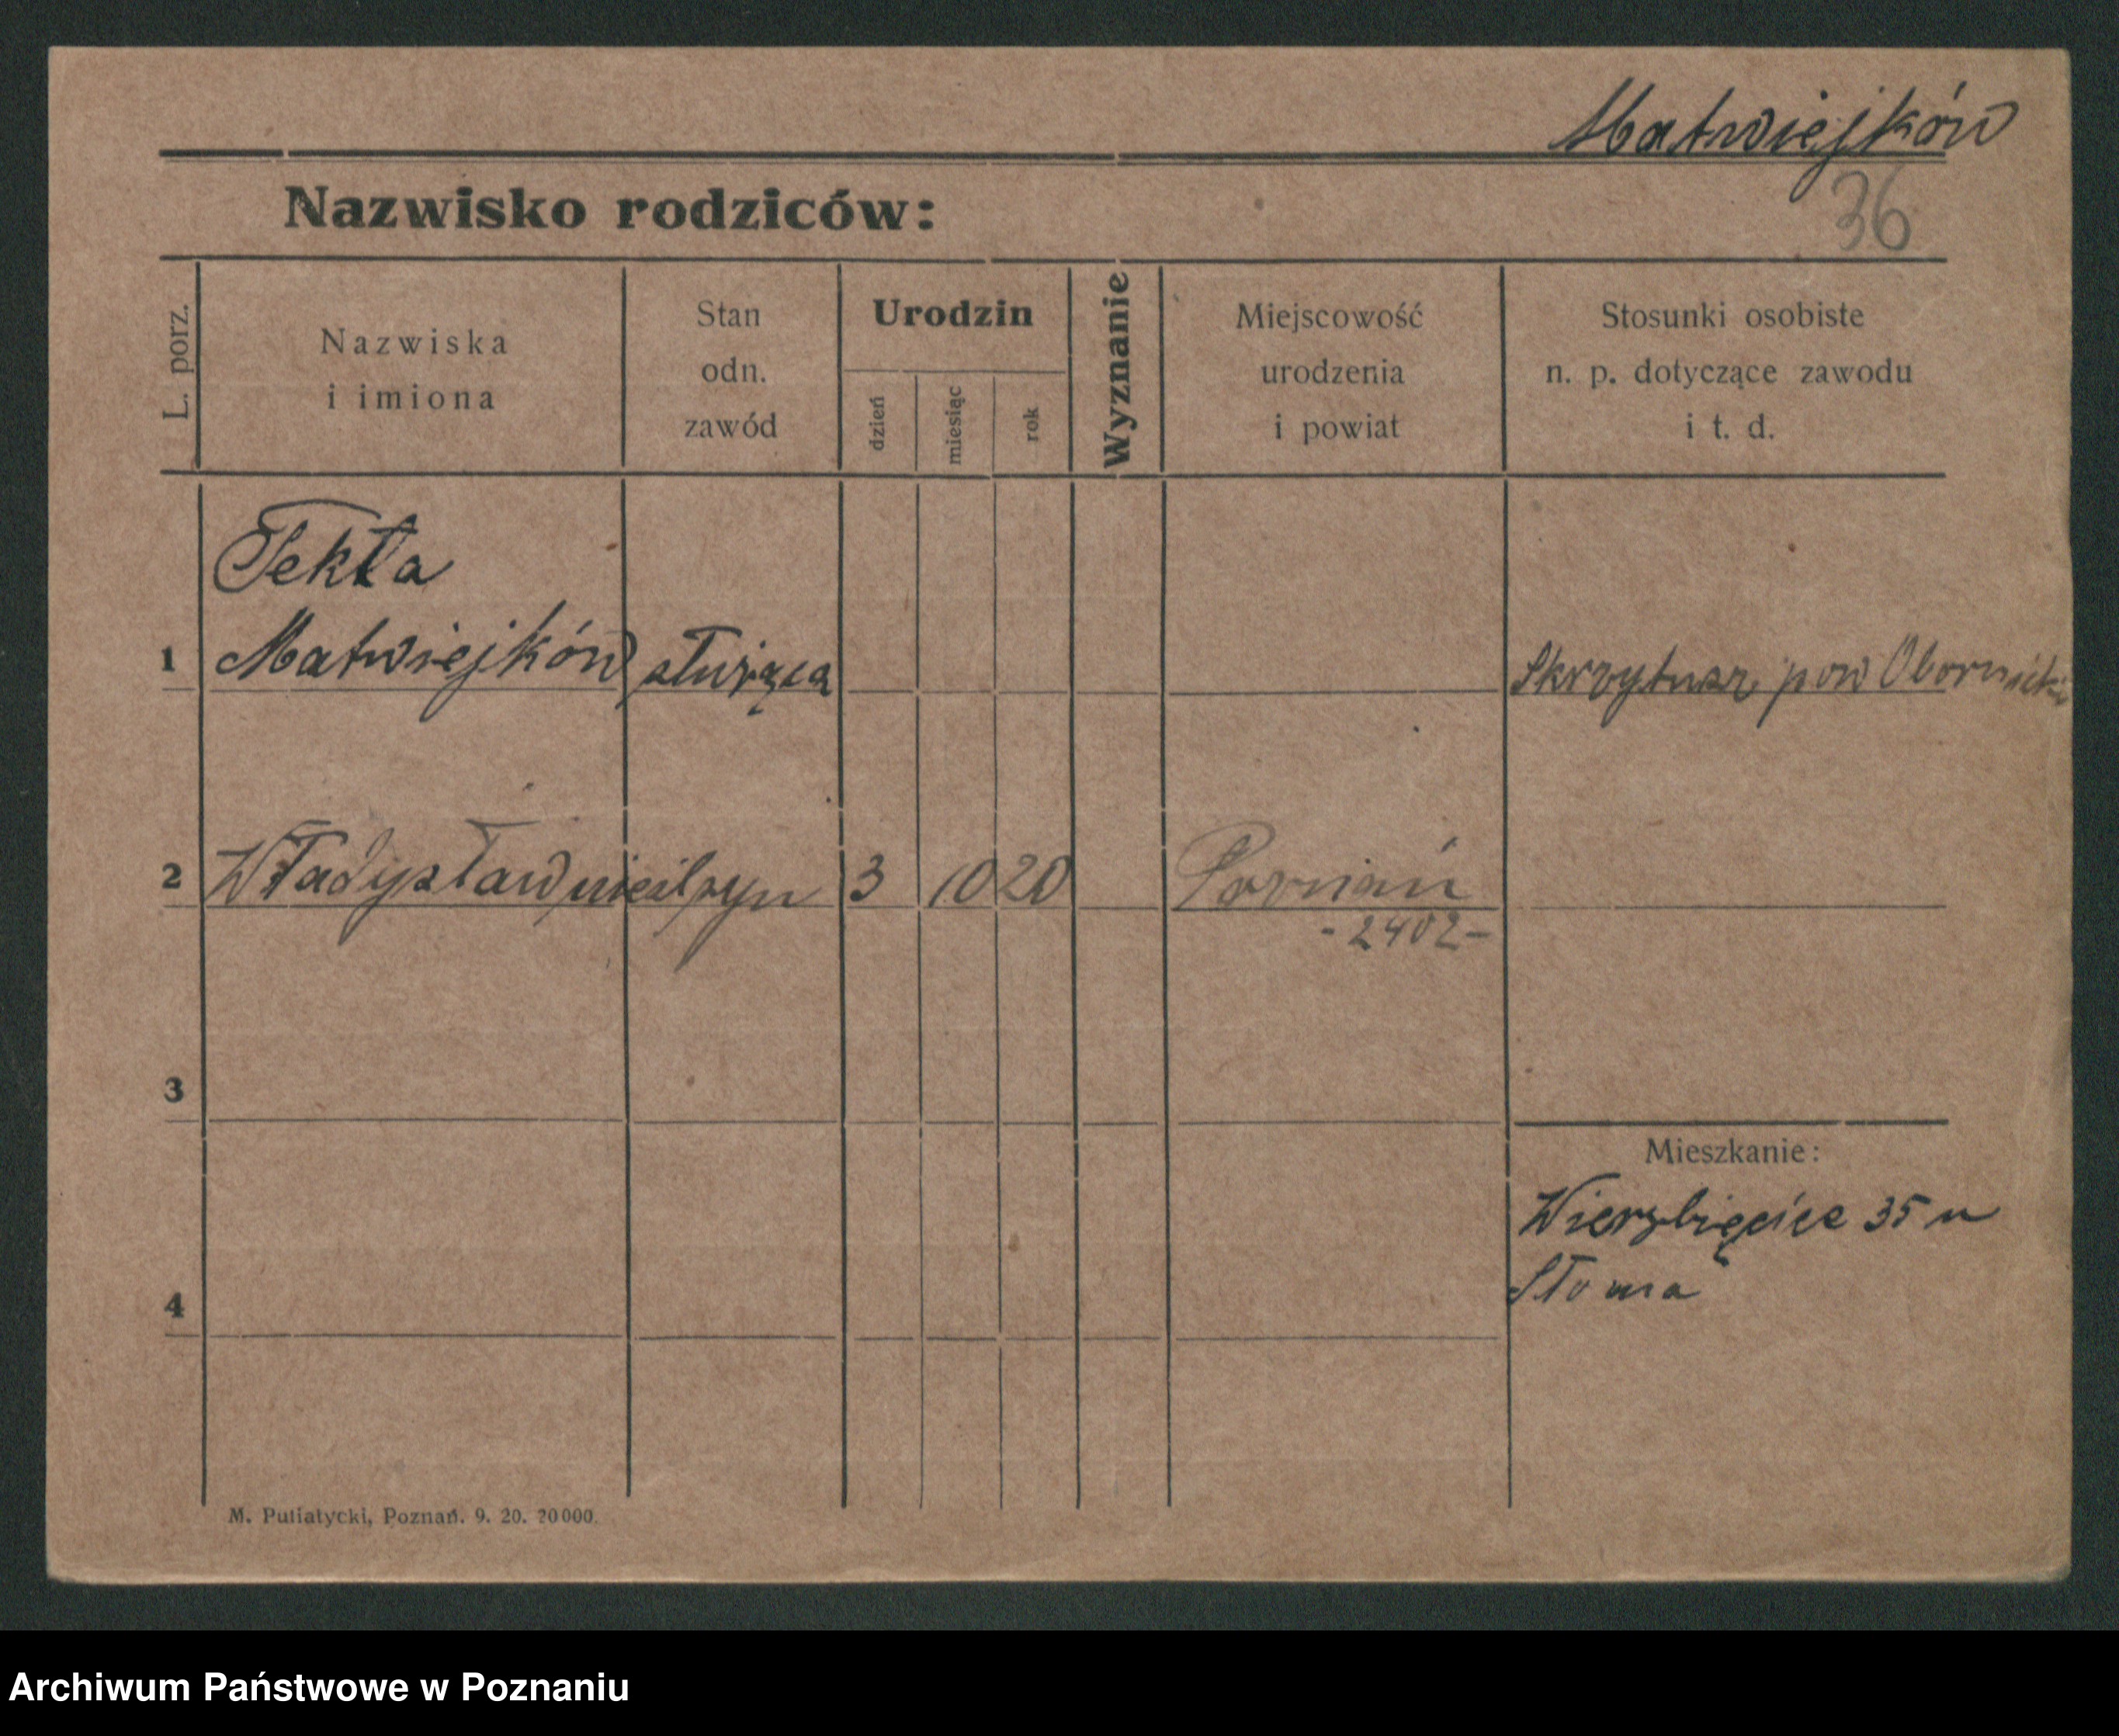 Matwiejków
36
Nazwisko rodziców:
L. porz.
Nazwiska
i imiona
Stan
odn.
zawód
Urodzin
dzień
miesiąc
rok
Wyznanie
Miejscowość
urodzenia
i powiat
Stosunki osobiste
n. p. dotyczące zawodu
i t. d.
Tekla
1 Matwiejków służąca Skrzytusz pow Obornicki
2 Władysław nieśl syn 3 10 20 Poznań
- 2402 -
3
Mieszkanie:
Wierzbięcice 35 u
4 Słoma
M. Putiatycki, Poznań. 9. 20. 20000.
Archiwum Państwowe w Poznaniu